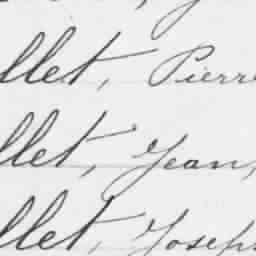 llet, Pierre
llet, Jean,
llet, Joseph